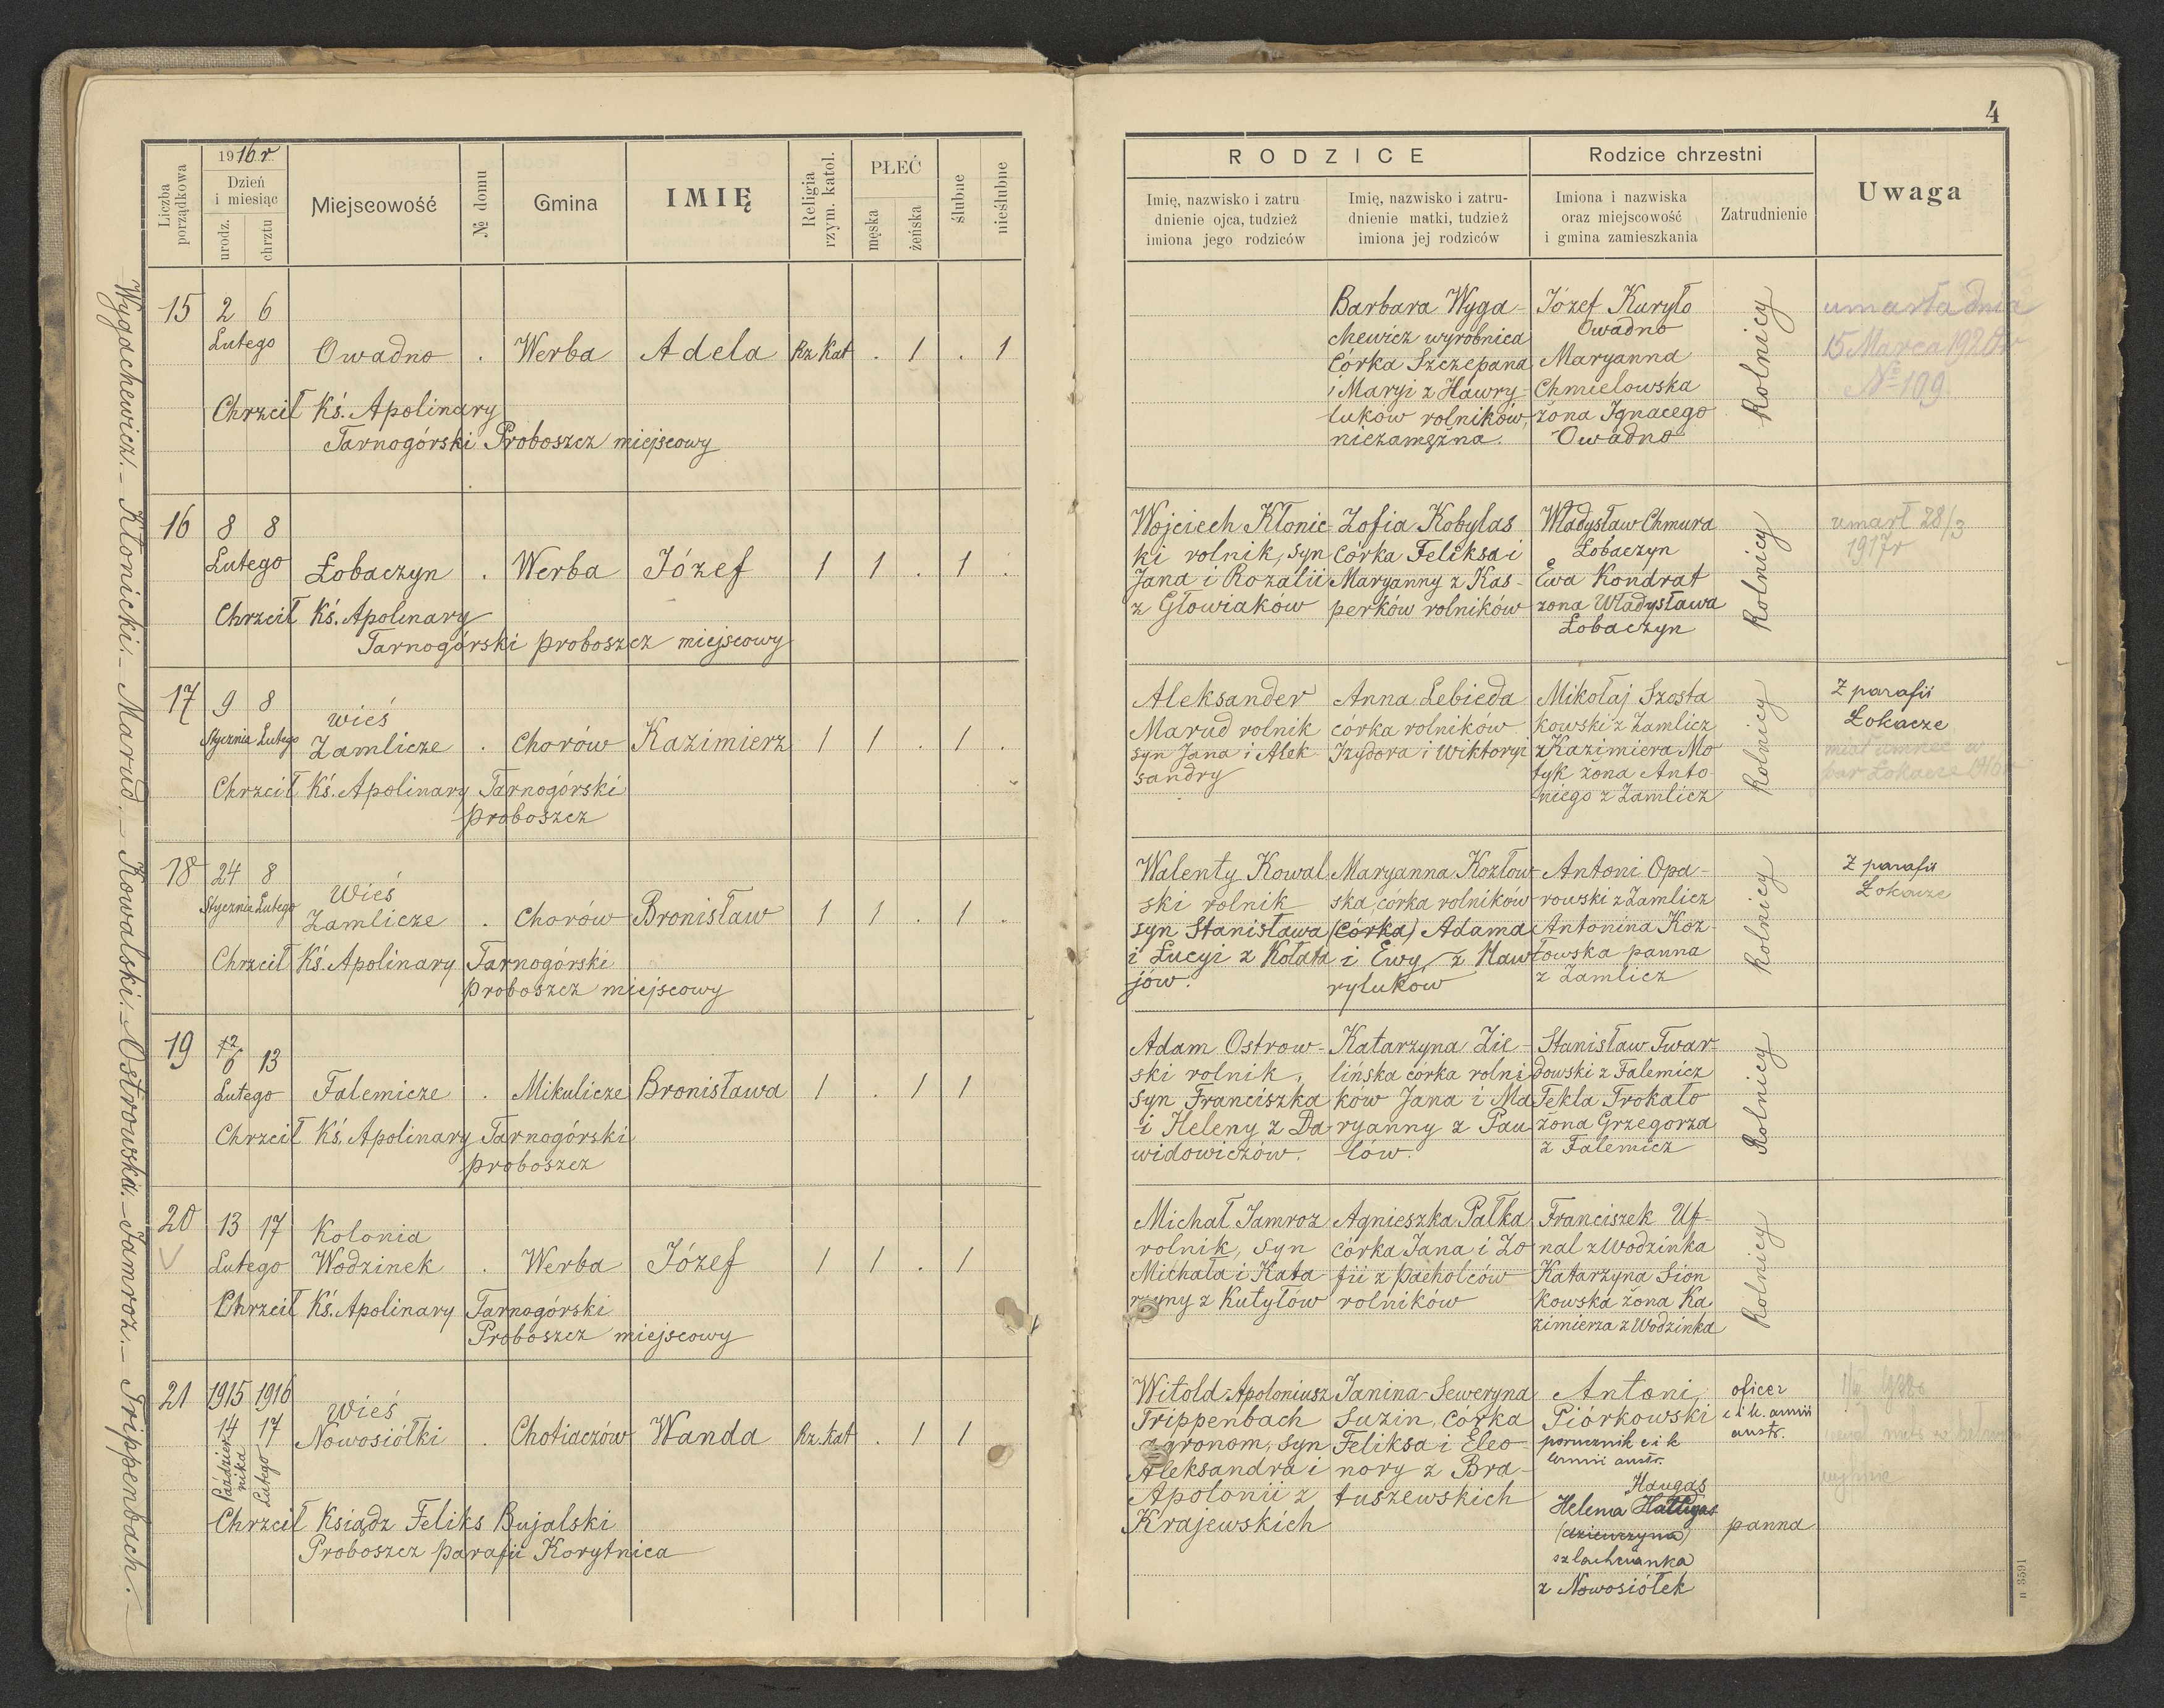 4
Liczba porządkowa
1916 r
Dzień
i miesiąc
urodz.
chrztu
Miejscowość
№ domu
Gmina
IMIĘ
Religia
rzym. katol.
PŁEĆ
męska
żeńska
ślubne
nieślubne
RODZICE
Imię, nazwisko i zatru
dnienie ojca, tudzież
imiona jego rodziców
Imię, nazwisko i zatru-
dnienie matki, tudzież
imiona jej rodziców
Rodzice chrzestni
Imiona i nazwiska
oraz miejscowość
i gmina zamieszkania
Zatrudnienie
Uwaga
Wygachewicz. – Kłonicki. – Marud. – Kowalski. – Ostrowska. – Jamroz. – Trippenbach. –
15
2 6
Lutego
Owadno . Werba Adela Rz Kat . 1 . 1
Chrzcił Kś. Apolinary
Tarnogórski Proboszcz miejscowy
Barbara Wyga-
chewicz wyrobnica
Córka Szczepana
i Maryi z Hawry-
luków rolników,
niezamężna.
Józef Kuryło
Owadno
Maryanna
Chmielowska
żona Ignacego
Owadno
Rolnicy
umarła dnia
15 Marca 1920 r
№ 109
16
8 8
Lutego
Łobaczyn . Werba Józef 1 1 . 1 .
Chrzcił Kś. Apolinary
Tarnogórski proboszcz miejscowy
Wojciech Kłonic-
ki rolnik, syn
Jana i Rozalii
z Głowiaków
Zofia Kobylas
córka Feliksa i
Maryanny z Kas-
perków rolników
Władysław Chmura
Łobaczyn
Ewa Kondrat
żona Władysława
Łobaczyn
Rolnicy
umarł 28/3
1917 r
17
9 8
Stycznia Lutego
wieś
Zamlicze . Chorów Kazimierz 1 1 . 1 .
Chrzcił Kś. Apolinary Tarnogórski
proboszcz
Aleksander
Marud rolnik
syn Jana i Alek-
sandry
Anna Lebieda
córka rolników
Izydora i Wiktoryi
Mikołaj Szosta
kowski z Zamlicz
z Kazimiera Mo
tyk żona Anto-
niego z Zamlicz
Rolnicy
Z parafii
Łokacze
miał umrzec w
par Łokacze 1916
18
24 8
Stycznia Lutego
Wieś
Zamlicze . Chorów Bronisław 1 1 . 1 .
Chrzcił Kś. Apolinary Tarnogórski
proboszcz miejscowy
Walenty Kowal
ski rolnik
syn Stanisława
i Łucyi z Kołata
jów.
Maryanna Kozłow-
ska, córka rolników
(córka) Adama
i Ewy z Haw
ryluków
Antoni Opa-
rowski z Zamlicz
Antonina Koz-
łowska panna
z Zamlicz
Rolnicy
Z parafii
Łokacze
19
12
6 13
Lutego
Falemicze . Mikulicze Bronisława 1 . 1 1
Chrzcił Kś. Apolinary Tarnogórski
proboszcz
Adam Ostrow-
ski rolnik,
syn Franciszka
i Heleny z Da
widowiczów.
Katarzyna Zie-
lińska córka rolni
ków Jana i Ma
ryanny z Pau
lów.
Stanisław Twar-
dowski z Falemicz
Tekla Trokało
żona Grzegorza
z Falemicz
Rolnicy
20
13 17
Lutego
Kolonia
Wodzinek . Werba Józef 1 1 . 1
Chrzcił Kś. Apolinary Tarnogórski
Proboszcz miejscowy
Michał Jamroz
rolnik, syn
Michała i Kata
rzyny z Kutyłów
Agnieszka Pałka
córka Jana i Zo
fii z Pacholców
rolników
Franciszek Uf-
nal z Wodzinka
Katarzyna Sion
kowska żona Ka
zimierza z Wodzinka
Rolnicy
21
1915 1916
14 17
Października
Lutego
Wieś
Nowosiółki . Chotiaczów Wanda Rz. Kat . 1 1
Chrzcił Ksiądz Feliks Bujalski
Proboszcz parafii Korytnica
Witold-Apoloniusz
Trippenbach
agronom, syn
Aleksandra i
Apolonii z
Krajewskich
Janina-Seweryna
Suzin, córka
Feliksa i Eleo-
nory z Bra-
tuszewskich
Antoni
Piórkowski
porucznik c i k
armii austr.
Haugas
Helena
(dziewczyna)
szlachcianka
z Nowosiółek
oficer
c i k. armii
austr.
panna